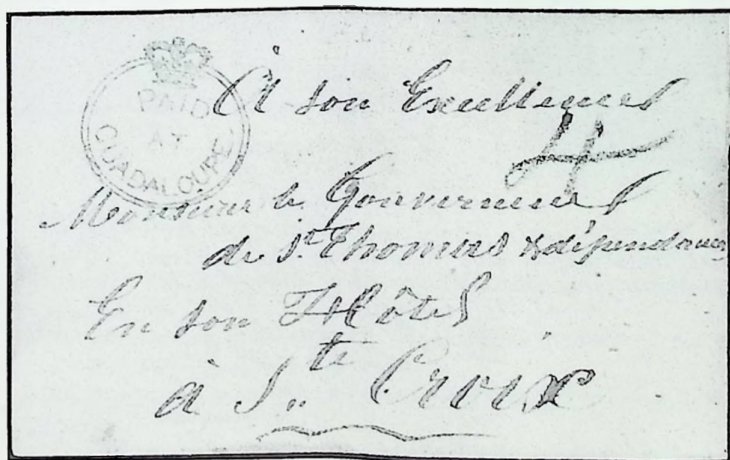 PAID
AT
GUADALOUPE
À son Excellence
4
Monsieur le Gouverneur
de St. Thomas & dépendances
En son Hôtel
à Ste. Croix